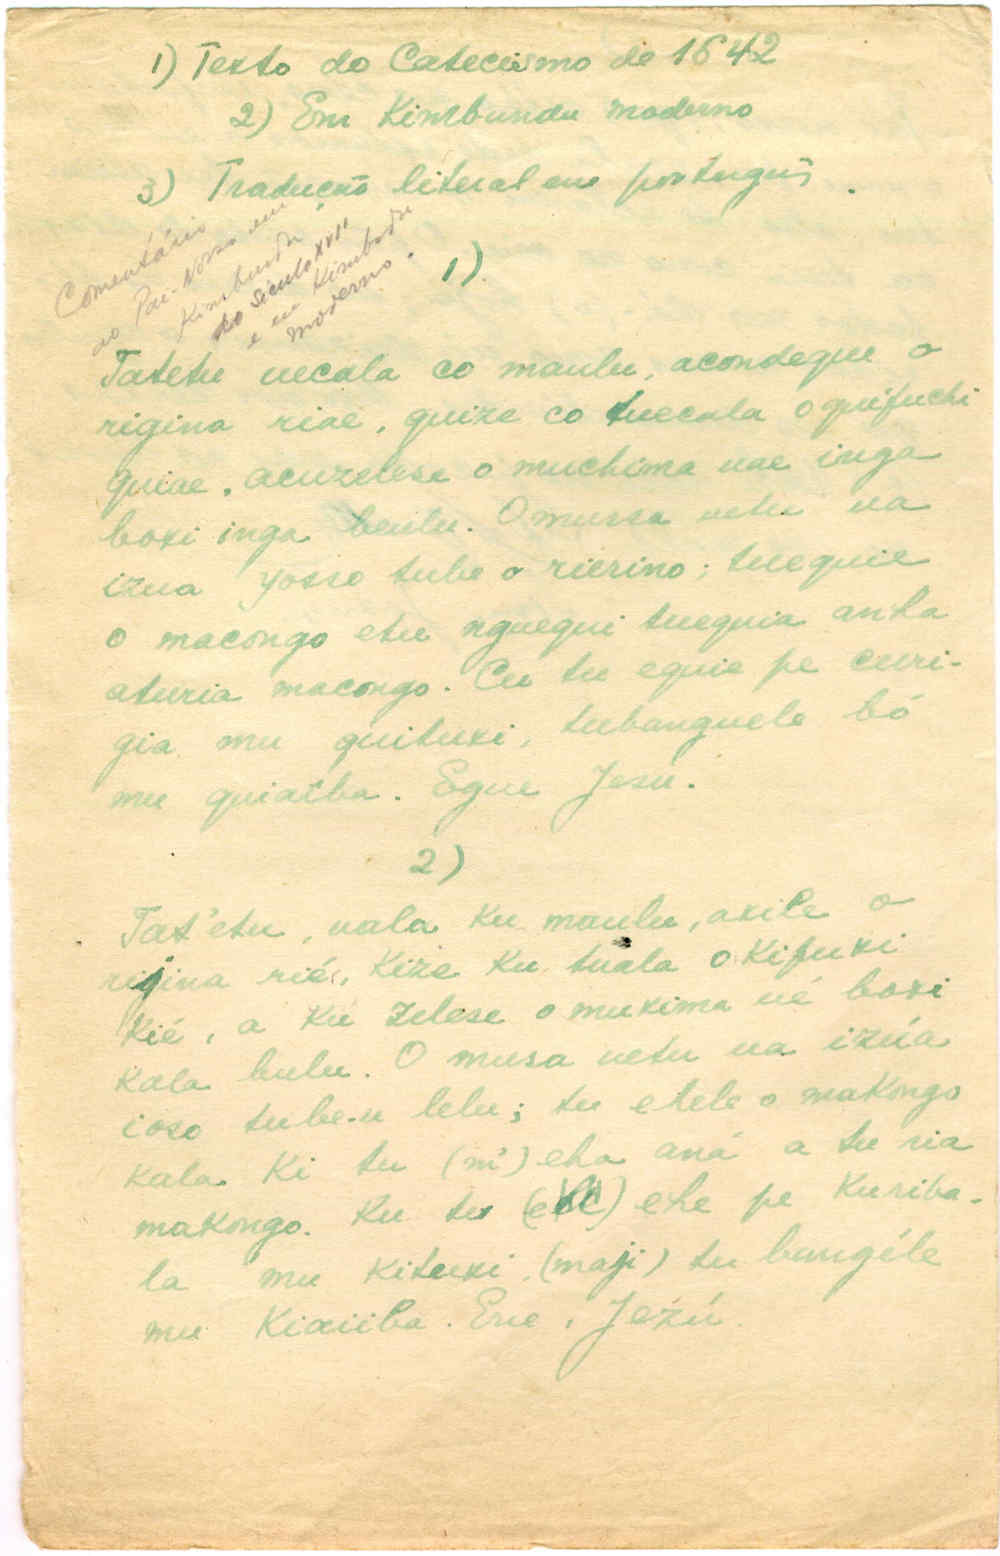 1) Texto do Catecismo de 1642
2) Em Kimbundu moderno
3) Tradução literal em português.
Comentário
ao Pai-Nosso em
Kimbundu
do Século XVII
e em Kimbundu
moderno.
1).
Tatetu uecala co maulu, acondeque o
rigina riae, quize co tuecala o quifuchi
quiae, acuzelese o muchima uae inga
boxi inga beulu. O mussa uetu ua
izua yosso tube o rierino; tuequie
o macongo etu nguequi tuequia anha
aturia macongo. Cu tu equie pe curi-
gia mu quituxi, tubanguele bó
mu quiaiba. Egue Jesu.
2)
Tat'etu, uala ku maulu, axile o
rijina rié, kize ku tuala o kifuxi
kié, a ku zelese o muxima ué boxi
kala bulu. O musa uetu ua izúa
ioso tube-u lelu; tu elele o makongo
kala ki tu (m') eha aná a tu ria
makongo. Ku tu ehe pe kuriba-
la mu kituxi, (maji) tu bungéle
mu kiaiiba. Ene, Jezú.